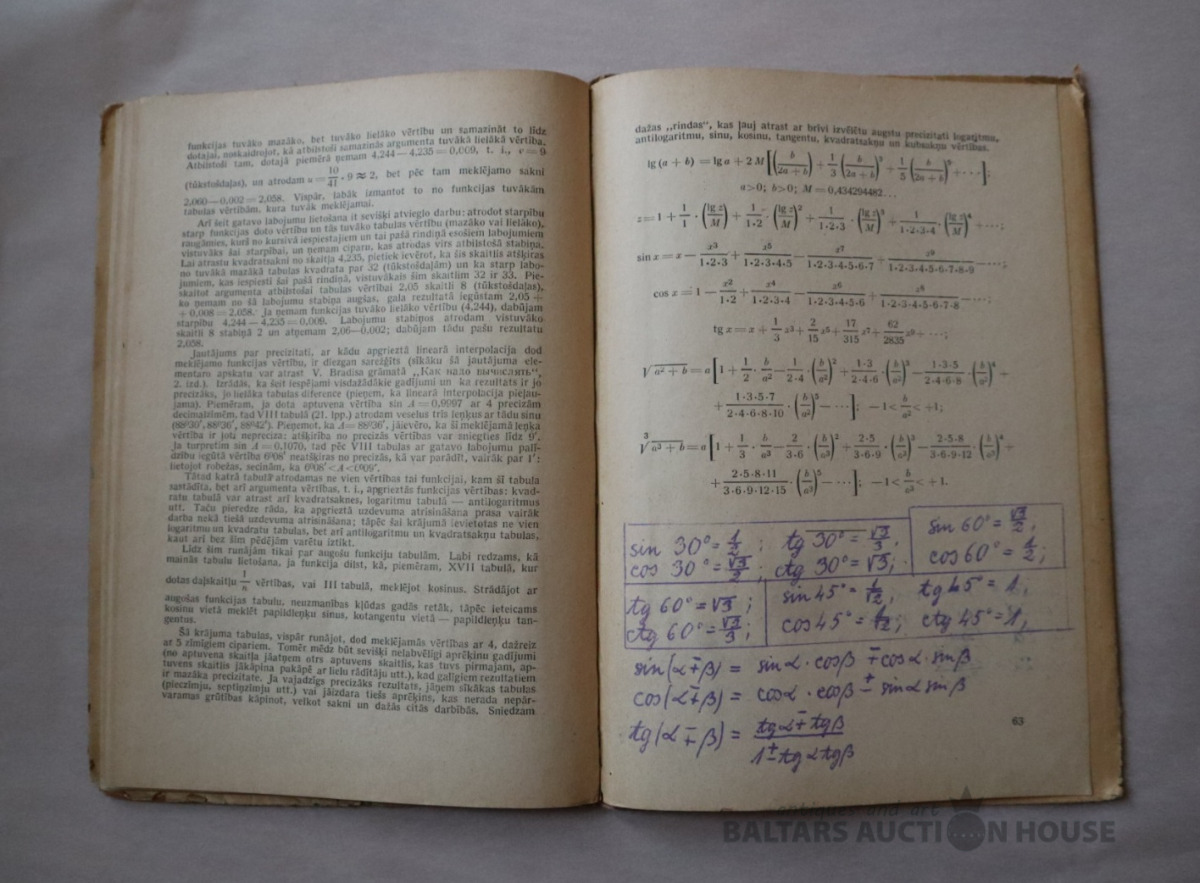 funkcijas tuvāko mazāko, bet tuvāko lielāko vērtību un samazināt to līdz
dotajai, noskaidrojot, kā atbilstoši samazinās argumenta tuvākā lielākā vērtība.
Atbilstoši tam, dotajā piemērā ņemam 4,244 — 4,235 = 0,009, t. i., v = 9
(tūkstošdaļas), un atrodam u = 10/41 · 9 ≈ 2, bet pēc tam meklējamo sakni
2,060—0,002 = 2,058. Vispār, labāk izmantot to no funkcijas tuvākām
tabulas vērtībām, kura tuvāk meklējamai.
Arī šeit gatavo labojumu lietošana it sevišķi atvieglo darbu: atrodot starpību
starp funkcijas doto vērtību un tās tuvāko tabulas vērtību (mazāko vai lielāko),
raugāmies, kurš no kursīvā iespiestajiem un tai pašā rindiņā esošiem labojumiem
vistuvāks šai starpībai, un ņemam ciparu, kas atrodas virs atbilstošā stabiņa.
Lai atrastu kvadrātsakni no skaitļa 4,235, pietiek ievērot, ka šis skaitlis atšķiras
no tuvākā mazākā tabulas kvadrāta par 32 (tūkstošdaļām) un ka starp labo-
jumiem, kas iespiesti šai pašā rindiņā, vistuvākais šim skaitlim 32 ir 33. Pie-
skaitot argumenta atbilstošai tabulas vērtībai 2,05 skaitli 8 (tūkstošdaļas),
ko ņemam no šā labojumu stabiņa augšas, gala rezultatā iegūstam 2,05 +
+ 0,008 = 2,058. Ja ņemam funkcijas tuvāko lielāko vērtību (4,244), dabūjam
starpību 4,244 — 4,235 = 0,009. Labojumu stabiņos atrodam vistuvāko
skaitli 8 stabiņā 2 un atņemam 2,06—0,002; dabūjam tādu pašu rezultatu
2,058.
Jautājums par precizitati, ar kādu apgrieztā lineārā interpolacija dod
meklējamo funkcijas vērtību, ir diezgan sarežģīts (sīkāku šā jautājuma ele-
mentaru apskatu var atrast V. Bradisa grāmatā „Как надо вычислять",
2. izd.). Izrādās, ka šeit iespējami visdažādākie gadījumi un ka rezultats ir jo
precizāks, jo lielāka tabulas diference (pieņem, ka lineārā interpolacija pieļau-
jama). Piemēram, ja dota aptuvena vērtība sin A = 0,9997 ar 4 precizām
decimalzīmēm, tad VIII tabulā (21. lpp.) atrodam veselus trīs leņķus ar tādu sinu
(88°30′, 88°36′, 88°42′). Pieņemot, ka A = 88°36′, jāievēro, ka šī meklējamā leņķa
vērtība ir ļoti nepreciza: atšķirība no precizās vērtības var sniegties līdz 9′.
Ja turpretim sin A = 0,1070, tad pēc VIII tabulas ar gatavo labojumu palī-
dzību iegūtā vērtība 6°08′ neatšķiras no precizās, kā var parādīt, vairāk par 1′:
lietojot robežas, secinām, ka 6°08′ < A < 6°09′.
Tātad katrā tabulā atrodamas ne vien vērtības tai funkcijai, kam šī tabula
sastādīta, bet arī argumenta vērtības, t. i., apgrieztās funkcijas vērtības: kvad-
ratu tabulā var atrast arī kvadratsaknes, logaritmu tabulā — antilogaritmus
utt. Taču pieredze rāda, ka apgrieztā uzdevuma atrisināšana prasa vairāk
darba nekā tiešā uzdevuma atrisināšana; tāpēc šai krājumā ievietotas ne vien
logaritmu un kvadratu tabulas, bet arī antilogaritmu un kvadratsakņu tabulas,
kaut arī bez šīm pēdējām varētu iztikt.
Līdz šim runājām tikai par augošu funkciju tabulām. Labi redzams, kā
mainās tabulu lietošana, ja funkcija dilst, kā, piemēram, XVII tabulā, kur
dotas daļskaitļu 1/n vērtības, vai III tabulā, meklējot kosinus. Strādājot ar
augošas funkcijas tabulu, neuzmanības kļūdas gadās retāk, tāpēc ieteicams
kosinu vietā meklēt papildleņķu sinus, kotangentu vietā — papildleņķu tan-
gentus.
Šā krājuma tabulas, vispār runājot, dod meklējamās vērtības ar 4, dažreiz
ar 5 zīmīgiem cipariem. Tomēr mēdz būt sevišķi nelabvēlīgi aprēķinu gadījumi
(no aptuvena skaitļa jāatņem otrs aptuvens skaitlis, kas tuvs pirmajam, ap-
tuvens skaitlis jākāpina pakāpē ar lielu rādītāju utt.), kad galīgiem rezultatiem
ir mazāka precizitate. Ja vajadzīgs precizāks rezultats, jāņem sīkākas tabulas
(pieczīmju, septiņzīmju utt.) vai jāizdara tiešs aprēķins, kas nerada nepār-
varamas grūtības kāpinot, velkot sakni un dažās citās darbībās. Sniedzam
dažas „rindas", kas ļauj atrast ar brīvi izvēlētu augstu precizitati logaritmu,
antilogaritmu, sinu, kosinu, tangentu, kvadratsakņu un kubsakņu vērtības.
lg (a + b) = lg a + 2 M [(b/(2a + b)) + 1/3 (b/(2a + b))³ + 1/5 (b/(2a + b))⁵ + ···];
a>0; b>0; M = 0,434294482...
z = 1 + 1/1 · (lg z/M) + 1/(1·2) · (lg z/M)² + 1/(1·2·3) · (lg z/M)³ + 1/(1·2·3·4) · (lg z/M)⁴ + ···;
sin x = x − x³/(1·2·3) + x⁵/(1·2·3·4·5) − x⁷/(1·2·3·4·5·6·7) + x⁹/(1·2·3·4·5·6·7·8·9) − ···;
cos x = 1 − x²/(1·2) + x⁴/(1·2·3·4) − x⁶/(1·2·3·4·5·6) + x⁸/(1·2·3·4·5·6·7·8) − ···;
tg x = x + 1/3 x³ + 2/15 x⁵ + 17/315 x⁷ + 62/2835 x⁹ + ···;
√(a² + b) = a [1 + 1/2 · b/a² − 1/(2·4) · (b/a²)² + 1·3/(2·4·6) · (b/a²)³ − 1·3·5/(2·4·6·8) · (b/a²)⁴ +
+ 1·3·5·7/(2·4·6·8·10) · (b/a²)⁵ − ···]; −1 < b/a² < +1;
∛(a³ + b) = a [1 + 1/3 · b/a³ − 2/(3·6) · (b/a³)² + 2·5/(3·6·9) · (b/a³)³ − 2·5·8/(3·6·9·12) · (b/a³)⁴ +
+ 2·5·8·11/(3·6·9·12·15) · (b/a³)⁵ − ···]; −1 < b/a³ < +1.
sin 30° = 1/2; tg 30° = √3/3; sin 60° = √3/2;
cos 30° = √3/2; ctg 30° = √3; cos 60° = 1/2;
tg 60° = √3; sin 45° = 1/√2, tg 45° = 1;
ctg 60° = √3/3; cos 45° = 1/√2; ctg 45° = 1,
sin(α∓β) = sin α · cos β ∓ cos α · sin β
cos(α∓β) = cos α · cos β ± sin α sin β
tg(α∓β) = (tg α ∓ tg β)/(1 ± tg α tg β)
63
antique and art
BALTARS AUCTION HOUSE